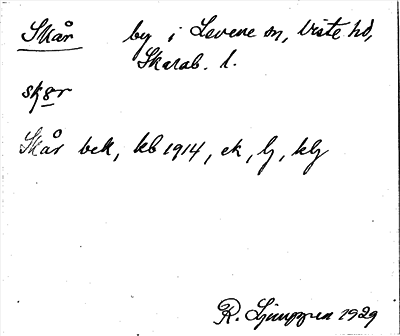 Skår by i Levene sn, Viste hd,
Skarab. l.
skær
Skår bek, kb 1914, ek, lj, klj
R. Ljunggren 1929